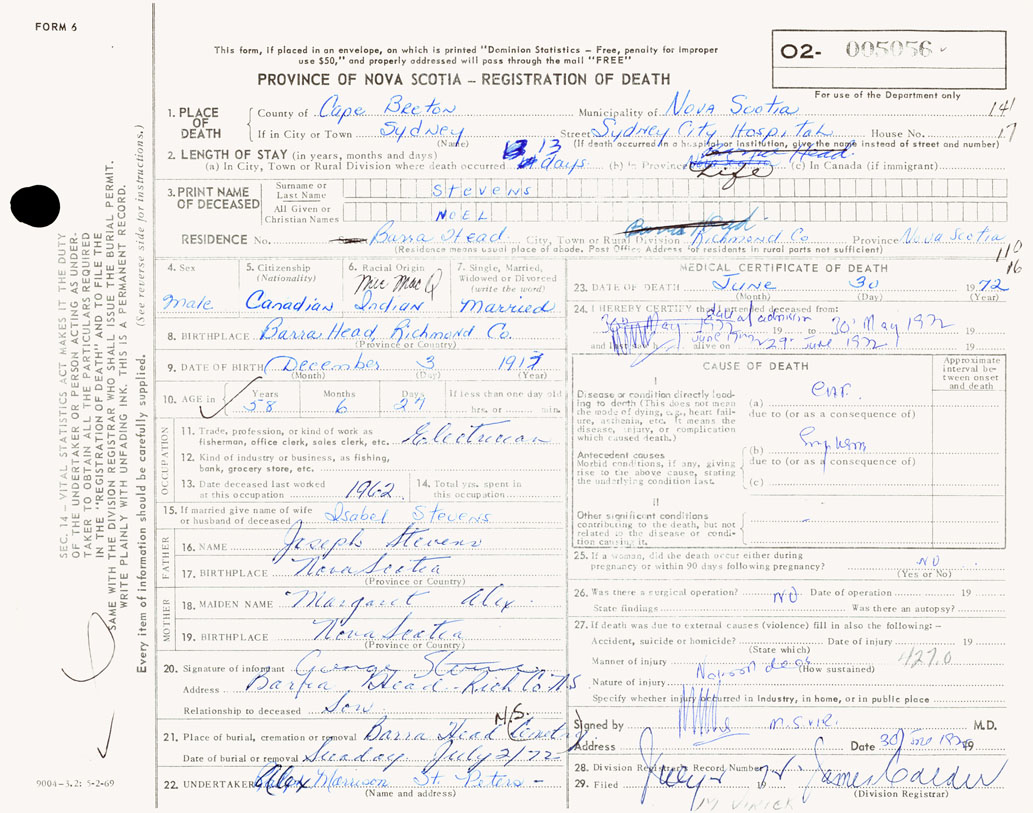 FORM 6
This form, if placed in an envelope, on which is printed "Dominion Statistics — Free, penalty for improper
use $50," and properly addressed will pass through the mail "FREE"
PROVINCE OF NOVA SCOTIA — REGISTRATION OF DEATH
02- 005056
For use of the Department only
SEC. 14 — VITAL STATISTICS ACT MAKES IT THE DUTY
OF THE UNDERTAKER OR PERSON ACTING AS UNDER-
TAKER TO OBTAIN ALL THE PARTICULARS REQUIRED
IN THE "REGISTRATION OF DEATH" AND TO FILE THE
SAME WITH THE DIVISION REGISTRAR WHO SHALL ISSUE THE BURIAL PERMIT.
WRITE PLAINLY WITH UNFADING INK. THIS IS A PERMANENT RECORD.
Every item of information should be carefully supplied. (See reverse side for instructions.)
1. PLACE OF DEATH
County of Cape Breton Municipality of Nova Scotia 141
If in City or Town Sydney Street Sydney City Hospital House No. 17
(Name) (If death occurred in a hospital or institution, give the name instead of street and number)
2. LENGTH OF STAY (in years, months and days)
(a) In City, Town or Rural Division where death occurred 13 days (b) In Province Life (c) In Canada (if immigrant)
3. PRINT NAME OF DECEASED
Surname or Last Name STEVENS
All Given or Christian Names NOEL
RESIDENCE No. Barra Head City, Town or Rural Division Richmond Co Province Nova Scotia
(Residence means usual place of abode. Post Office Address of residents in rural parts not sufficient)
4. Sex Male
5. Citizenship (Nationality) Canadian
6. Racial Origin Mic Mac Indian
7. Single, Married, Widowed or Divorced (write the word) Married
8. BIRTHPLACE Barra Head, Richmond Co.
(Province or Country)
9. DATE OF BIRTH December 3 1913
(Month) (Day) (Year)
10. AGE in Years 58 Months 6 Days 27 If less than one day old hrs. or min.
OCCUPATION
11. Trade, profession, or kind of work as
fisherman, office clerk, sales clerk, etc. Electrician
12. Kind of industry or business, as fishing,
bank, grocery store, etc.
13. Date deceased last worked
at this occupation 1962
14. Total yrs. spent in
this occupation
15. If married give name of wife
or husband of deceased Isabel Stevens
FATHER
16. NAME Joseph Stevens
17. BIRTHPLACE Nova Scotia
(Province or Country)
MOTHER
18. MAIDEN NAME Margaret Alex
19. BIRTHPLACE Nova Scotia
(Province or Country)
20. Signature of informant George Stevens
Address Barra Head Rich Co N.S.
Relationship to deceased Son
21. Place of burial, cremation or removal Barra Head Cemetery N.S.
Date of burial or removal Sunday July 2/72
22. UNDERTAKER Alex Morrison St. Peters
(Name and address)
9004-3.2: 5-2-69
MEDICAL CERTIFICATE OF DEATH
23. DATE OF DEATH June 30 1972
(Month) (Day) (Year)
24. I HEREBY CERTIFY that I attended deceased from:
May 1972 19 to 30 May 1972 19
alive on 29 June 1972 19
CAUSE OF DEATH
Approximate interval between onset and death
I
Disease or condition directly leading to death (This does not mean the mode of dying, e.g., heart failure, asthenia, etc. It means the disease, injury, or complication which caused death.)
(a)
due to (or as a consequence of)
Antecedent causes
Morbid conditions, if any, giving rise to the above cause, stating the underlying condition last.
(b) Emphysem
due to (or as a consequence of)
(c)
II
Other significant conditions contributing to the death, but not related to the disease or condition causing it.
25. If a woman, did the death occur either during
pregnancy or within 90 days following pregnancy? NO
(Yes or No)
26. Was there a surgical operation? NO Date of operation 19
State findings Was there an autopsy?
27. If death was due to external causes (violence) fill in also the following: —
Accident, suicide or homicide? Date of injury 19
(State which)
Manner of injury 427.0
(How sustained)
Nature of injury
Specify whether injury occurred in Industry, in home, or in public place
Signed by M.D.
Address Date 30 June 1972 19
28. Division Registrar's Record Number
29. Filed July 2 1972 James Calder
(Division Registrar)